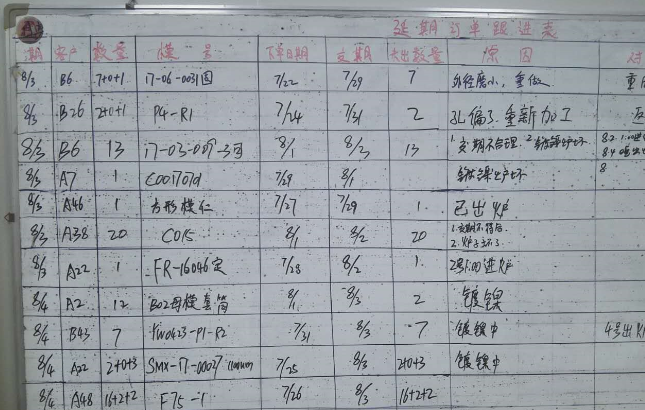 延期订单跟进表
期 客户 数量 模号 下单日期 交期 欠出数量 原因
8/3 B6 7+0+1 17-06-0031围 7/22 7/29 7 外径磨小、重做
8/3 B26 2+0+1 P4-R1 7/24 7/31 2 孔偏了.重新加工
8/3 B6 13 17-03-007-3 8/1 8/2 13 1.交期不合理. 2.
8/3 A7 1 7/29 8/1
8/3 A46 1 方形模仁 7/27 7/29 1. 已出炉
8/3 A38 20 C015 8/1 8/2 20 1.交期不符合.
2.炉子坏了
8/3 A22 1 FR-16046定 7/28 8/2 1. 2号1:00进炉
8/4 A2 12 B02母模套筒 8/1 8/3 2 镀镍
8/4 B43 7 YW0423-P1-R2 7/31 8/3 7 镀镍中 4号出
8/4 A22 2+0+3 SMX-17-00027 7/25 8/3 2+0+3 镀镍中
8/4 A48 16+2+2 F75-1 7/26 8/3 16+2+2